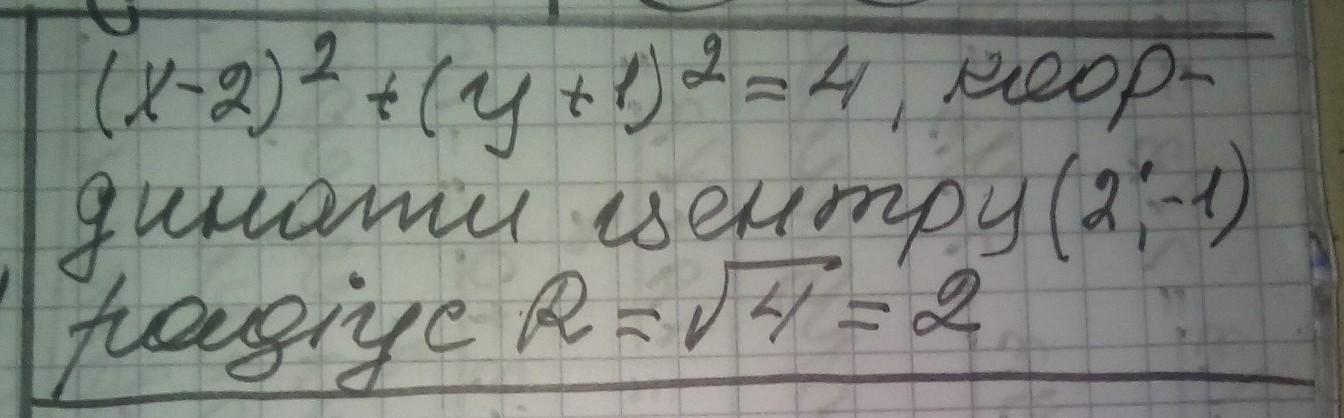 (x-2)² + (y+1)² = 4, коор-
динати центру (2;-1)
радіус R = √4 = 2